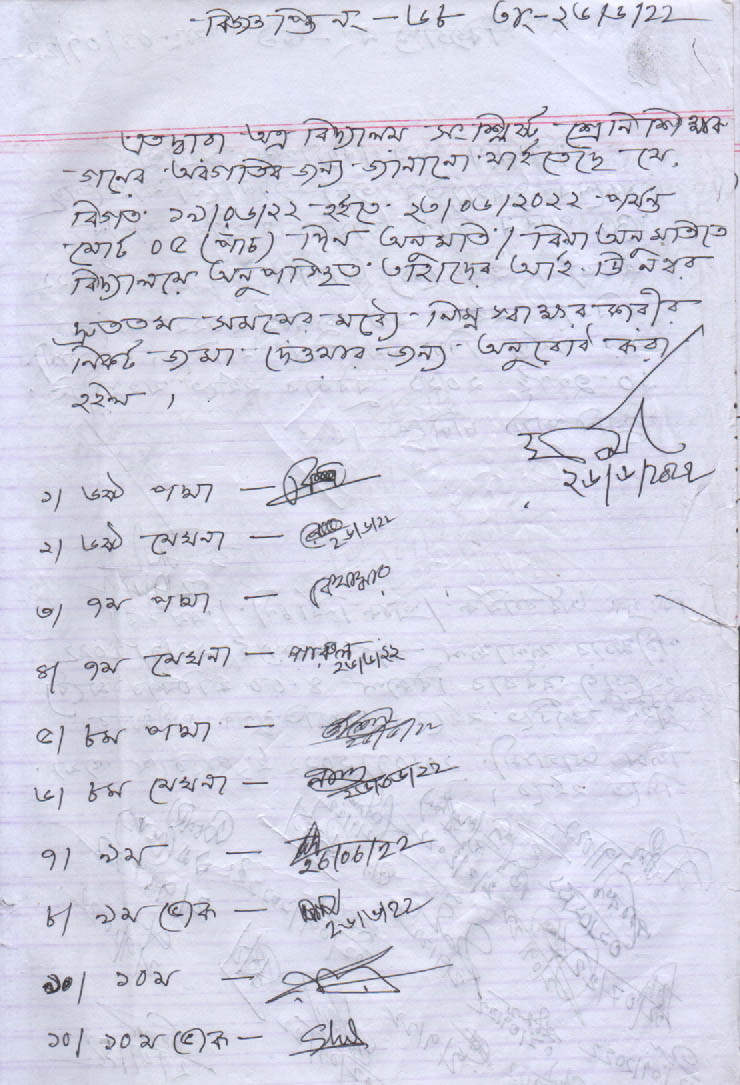 বিজ্ঞপ্তি নং - ৬৮ তাং - ২৬/৬/২২
এতদ্বারা অত্র বিদ্যালয় সংশ্লিষ্ট শ্রেনি শিক্ষক
গনের অবগতির জন্য জানানো যাইতেছে যে,
বিগত ১৯/০৬/২২ হইতে ২৩/০৬/২০২২ পর্যন্ত
মোট ০৫ (পাঁচ) দিন অনুমতি / বিনা অনুমতিতে
বিদ্যালয়ে অনুপস্থিত তাহাদের আই. ডি নম্বর
দ্রুততম সময়ের মধ্যে নিম্ন স্বাক্ষর কারীর
নিকট জমা দেওয়ার জন্য অনুরোধ করা
হইল ।
২৬/৬/২০২২
১) ৬ষ্ঠ পদ্মা -
২) ৬ষ্ঠ মেঘনা - ২৬/৬/২২
৩) ৭ম পদ্মা -
৪) ৭ম মেঘনা - পারুল ২৬/৬/২২
৫) ৮ম পদ্মা -
৬) ৮ম মেঘনা - ২৬/০৬/২২
৭) ৯ম - 26/06/22
৮) ৯ম ভোক - ২৬/৬/২২
১০ম -
১০) ১০ম ভোক -